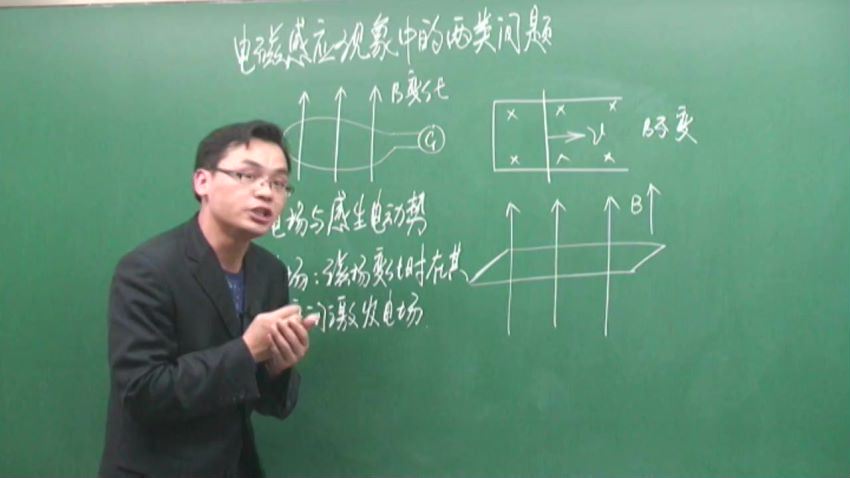 电磁感应现象中的两类问题
B变化
G
v
B不变
B
电场与感生电动势
场:磁场变化时在其
空间激发电场.